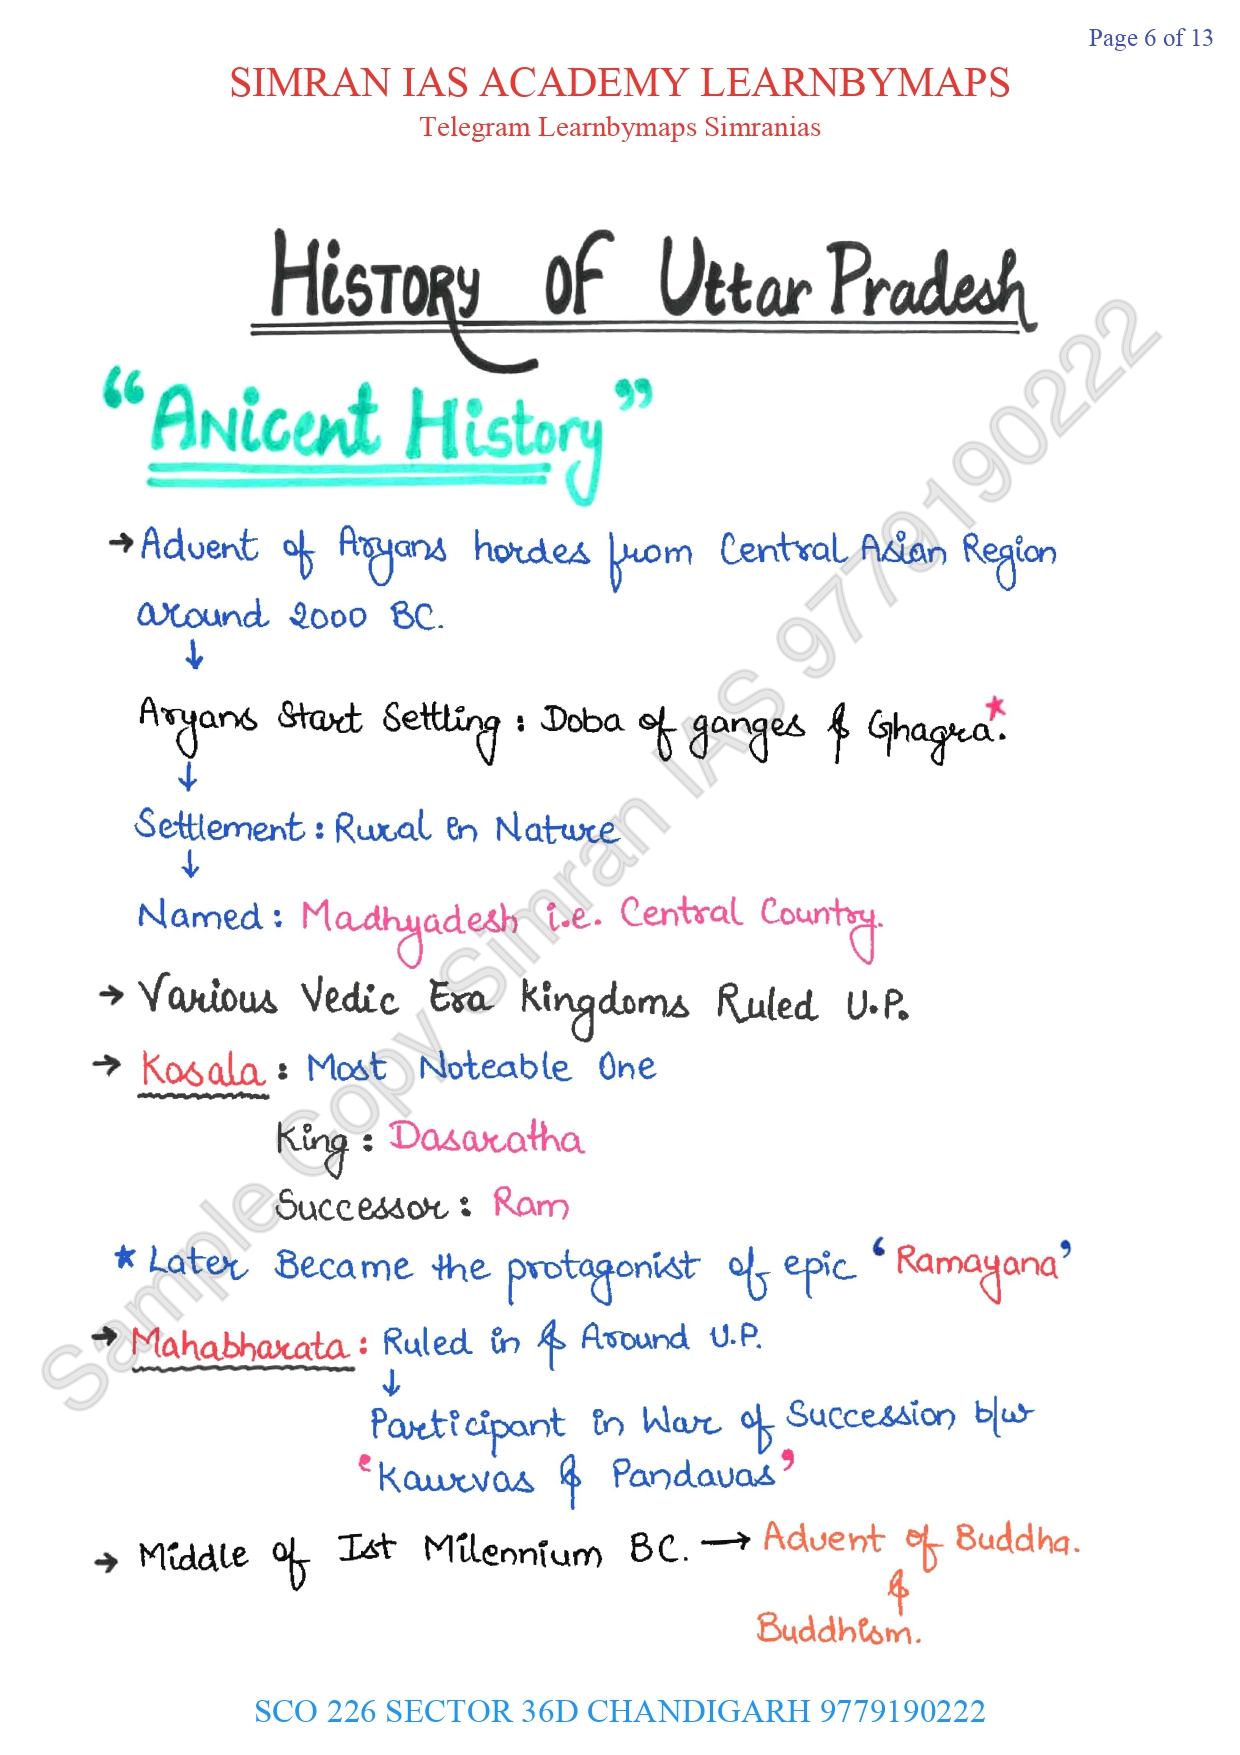 Page 6 of 13
SIMRAN IAS ACADEMY LEARNBYMAPS
Telegram Learnbymaps Simranias
HISTORY OF Uttar Pradesh
“ANicent History”
→ Advent of Aryans hordes from Central Asian Region
around 2000 BC.
↓
Aryans Start Settling : Doba of ganges & Ghagra.*
↓
Settlement : Rural in Nature
↓
Named : Madhyadesh i.e. Central Country.
→ Various Vedic Era kingdoms Ruled U.P.
→ Kosala : Most Noteable One
King : Dasaratha
Successor : Ram
★ Later Became the protagonist of epic ‘Ramayana’
→ Mahabharata : Ruled in & Around U.P.
↓
Participant in War of Succession b/w
‘Kaurvas & Pandavas’
→ Middle of Ist Milennium BC. → Advent of Buddha.
&
Buddhism.
SCO 226 SECTOR 36D CHANDIGARH 9779190222
Sample Copy Simran IAS 9779190222